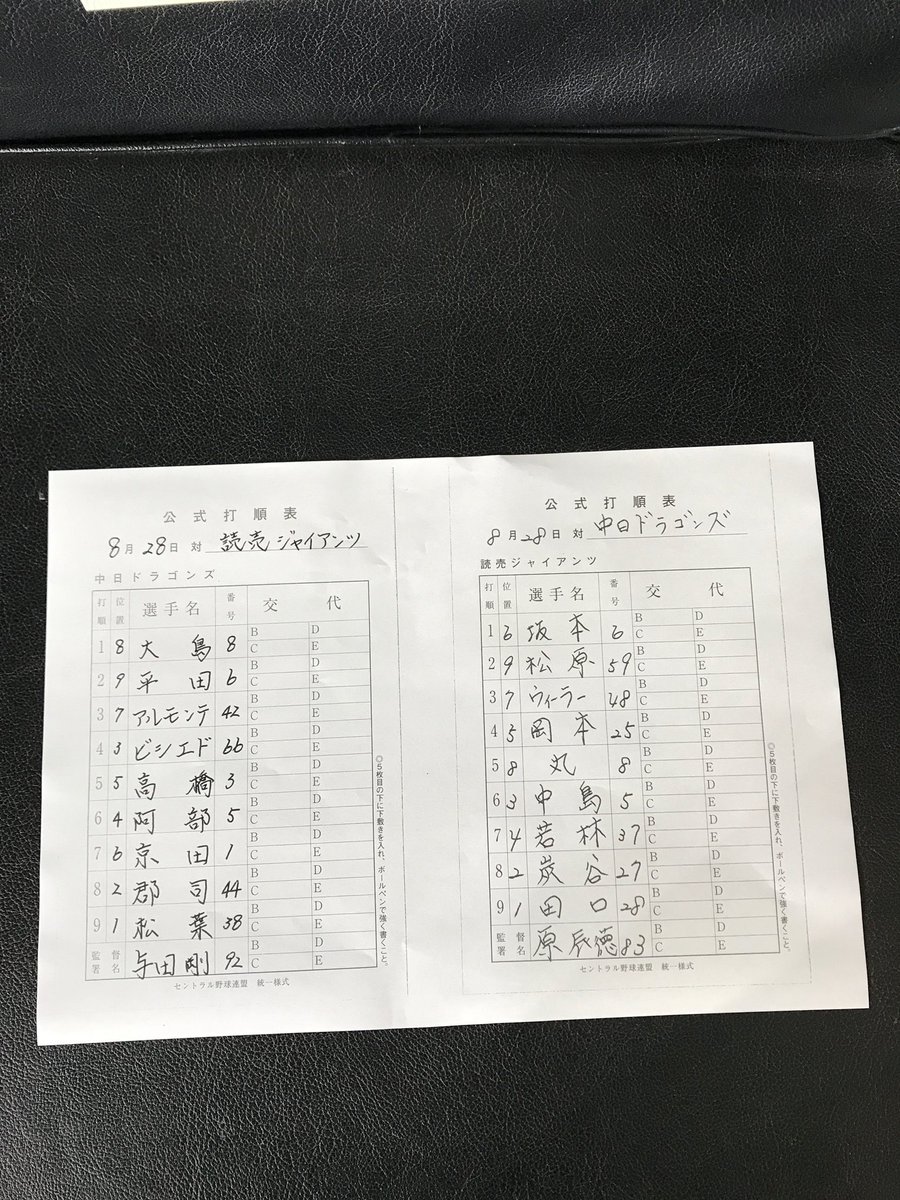 公式打順表
8月28日 対 読売ジャイアンツ
中日ドラゴンズ
打順 位置 選手名 番号 交代
1 8 大島 8 B C D E
2 9 平田 6 B C D E
3 7 アルモンテ 42 B C D E
4 3 ビシエド 66 B C D E
5 5 高橋 3 B C D E
6 4 阿部 5 B C D E
7 6 京田 1 B C D E
8 2 郡司 44 B C D E
9 1 松葉 38 B C D E
監督署名 与田剛 92 B C D E
セントラル野球連盟 統一様式
◎5枚目の下に下敷きを入れ、ボールペンで強く書くこと。
公式打順表
8月28日 対 中日ドラゴンズ
読売ジャイアンツ
打順 位置 選手名 番号 交代
1 6 坂本 6 B C D E
2 9 松原 59 B C D E
3 7 ウィーラー 48 B C D E
4 5 岡本 25 B C D E
5 8 丸 8 B C D E
6 3 中島 5 B C D E
7 4 若林 37 B C D E
8 2 炭谷 27 B C D E
9 1 田口 28 B C D E
監督署名 原辰徳 83 B C D E
セントラル野球連盟 統一様式
◎5枚目の下に下敷きを入れ、ボールペンで強く書くこと。